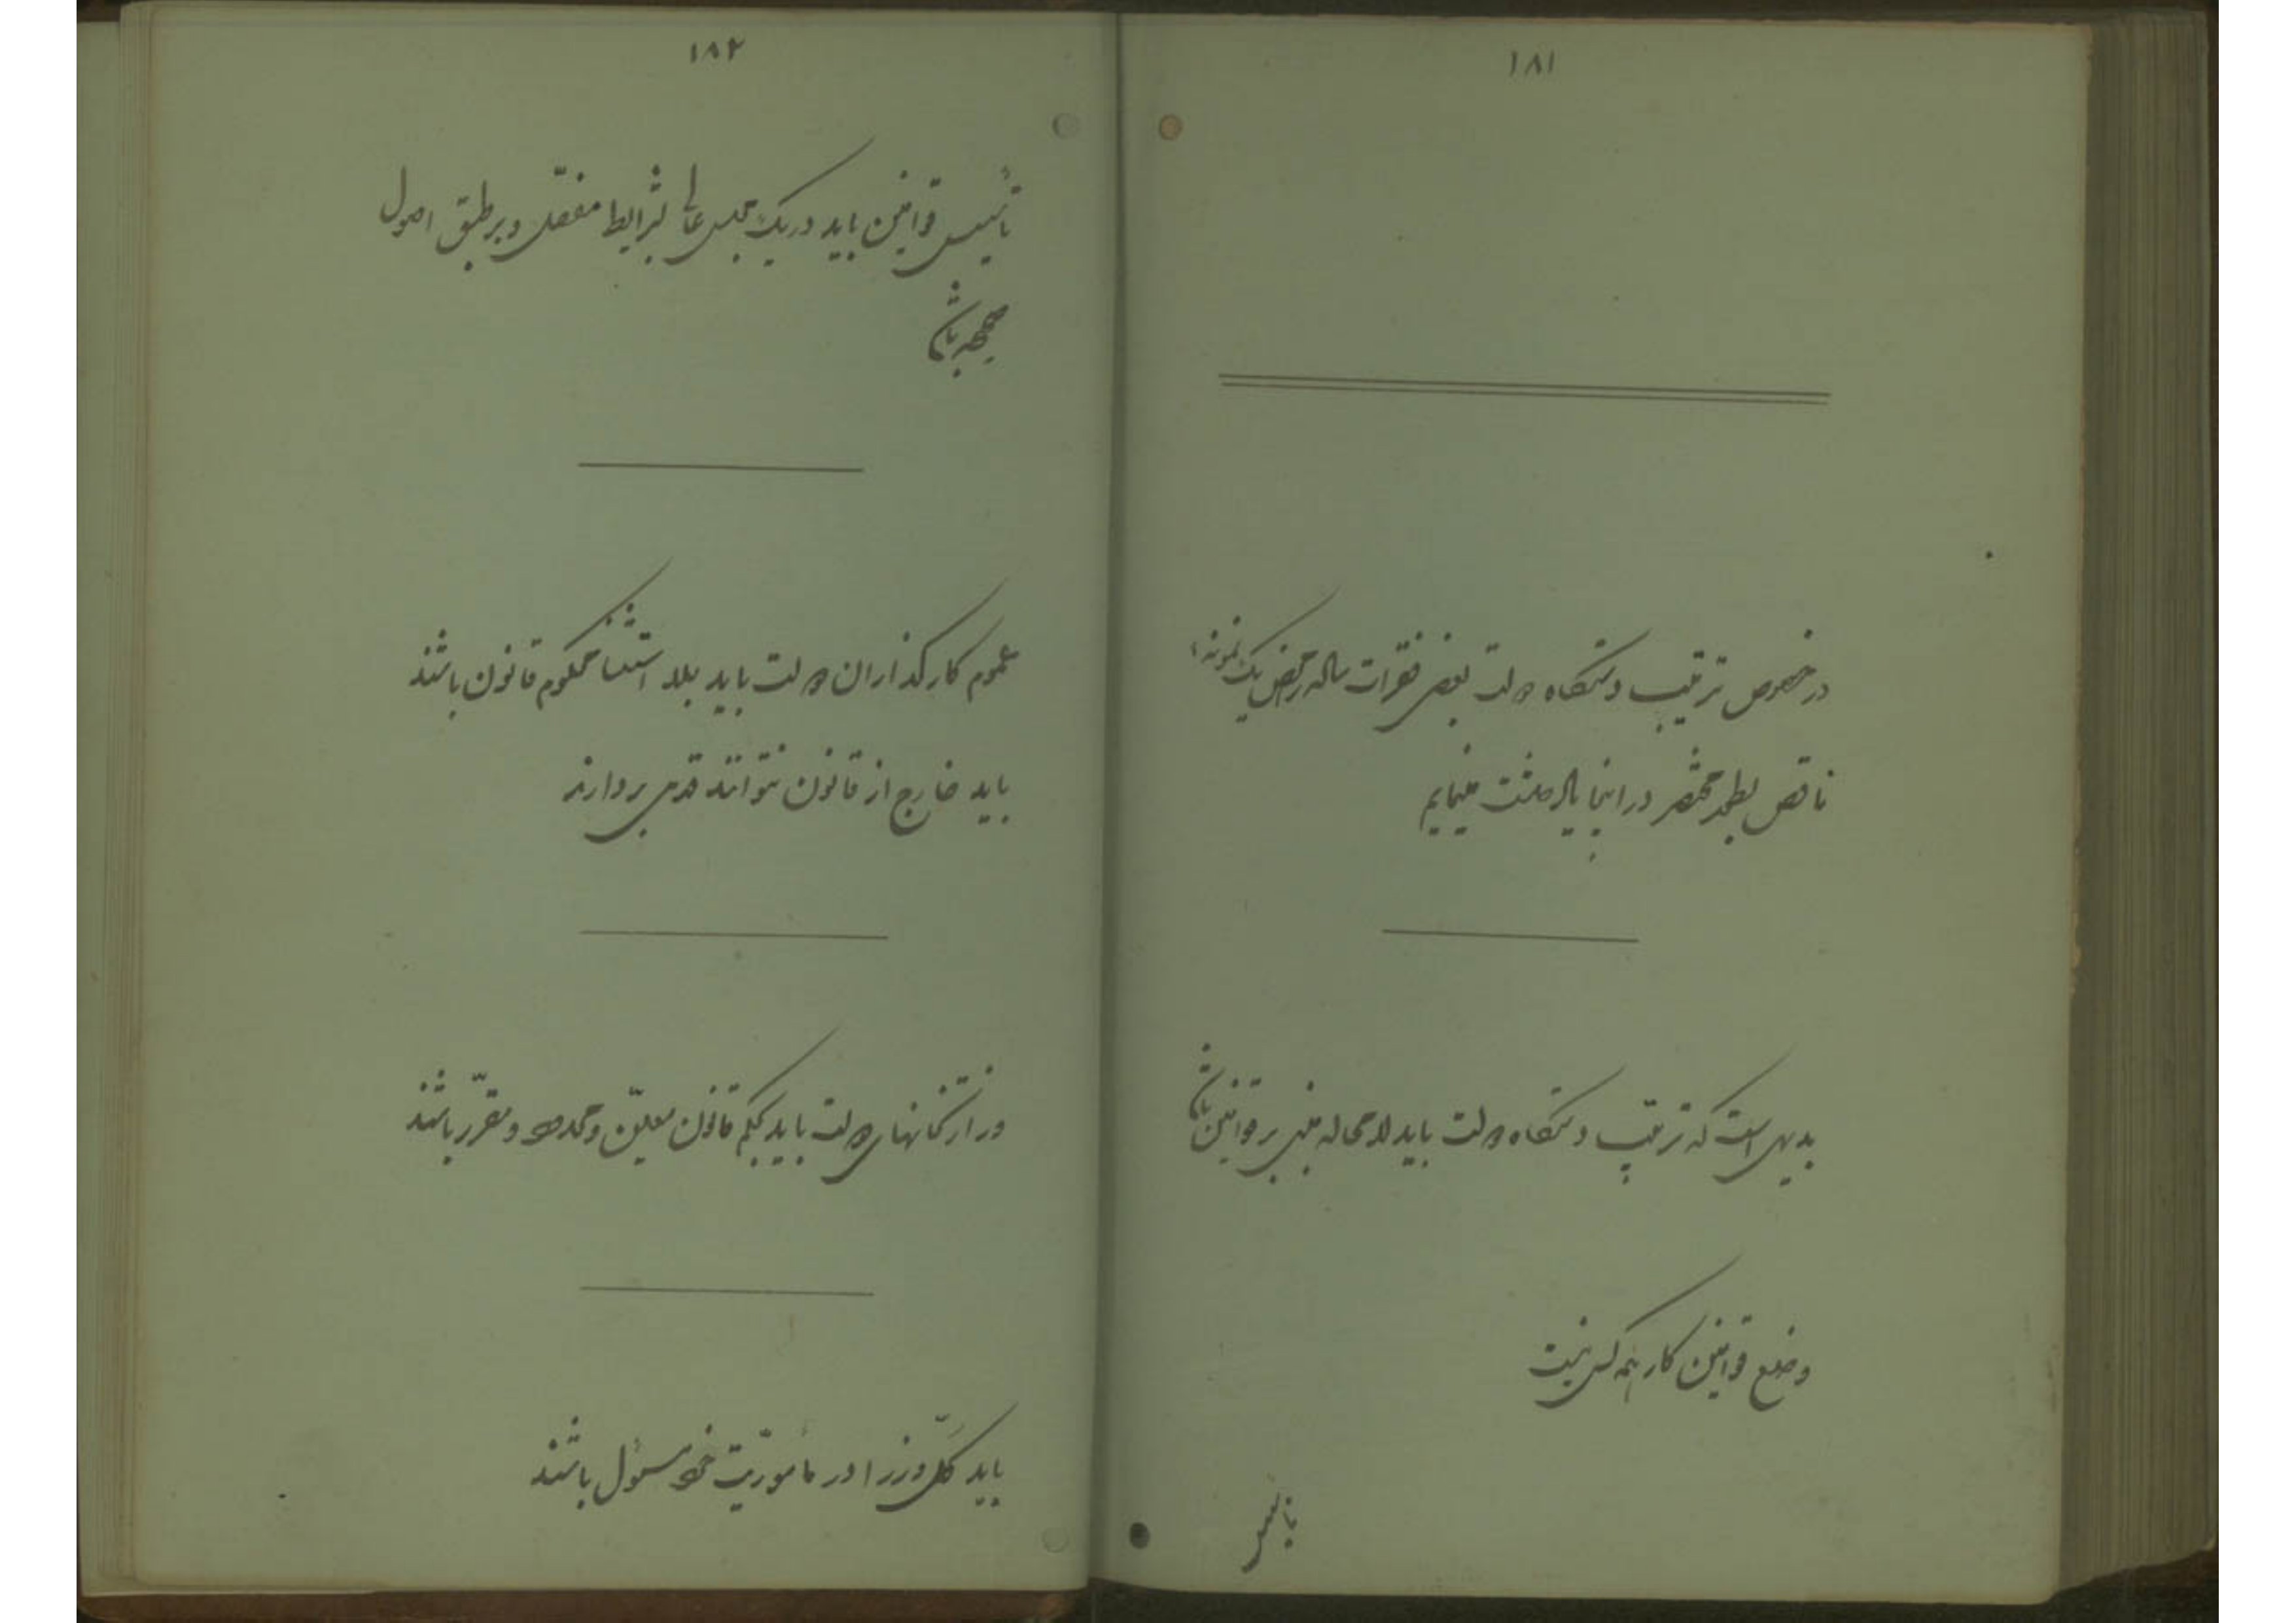 ۱۸۱
در خصوص ترتیب دستگاه دولت بعضی فقرات ساله محض یک نمونه
ناقص بطور مختصر در اینجا یاد داشت مینمایم
بدیهی است که ترتیب دستگاه دولت باید لامحاله مبنی بر قوانین باشد
وضع قوانین کار همه کس نیست
تأسیس
۱۸۲
تأسیس قوانین باید در یک مجلس عالی بشرایط مفصل و بر طبق اصول
صحیحه باشد
عموم کارگذاران دولت باید بلا استثنا محکوم قانون باشند
باید خارج از قانون نتوانند قدمی بردارند
وزارتخانهای دولت باید بحکم قانون معیّن و محدود و مقرّر باشند
باید کلّ وزرا در مأموریّت خود مسئول باشند